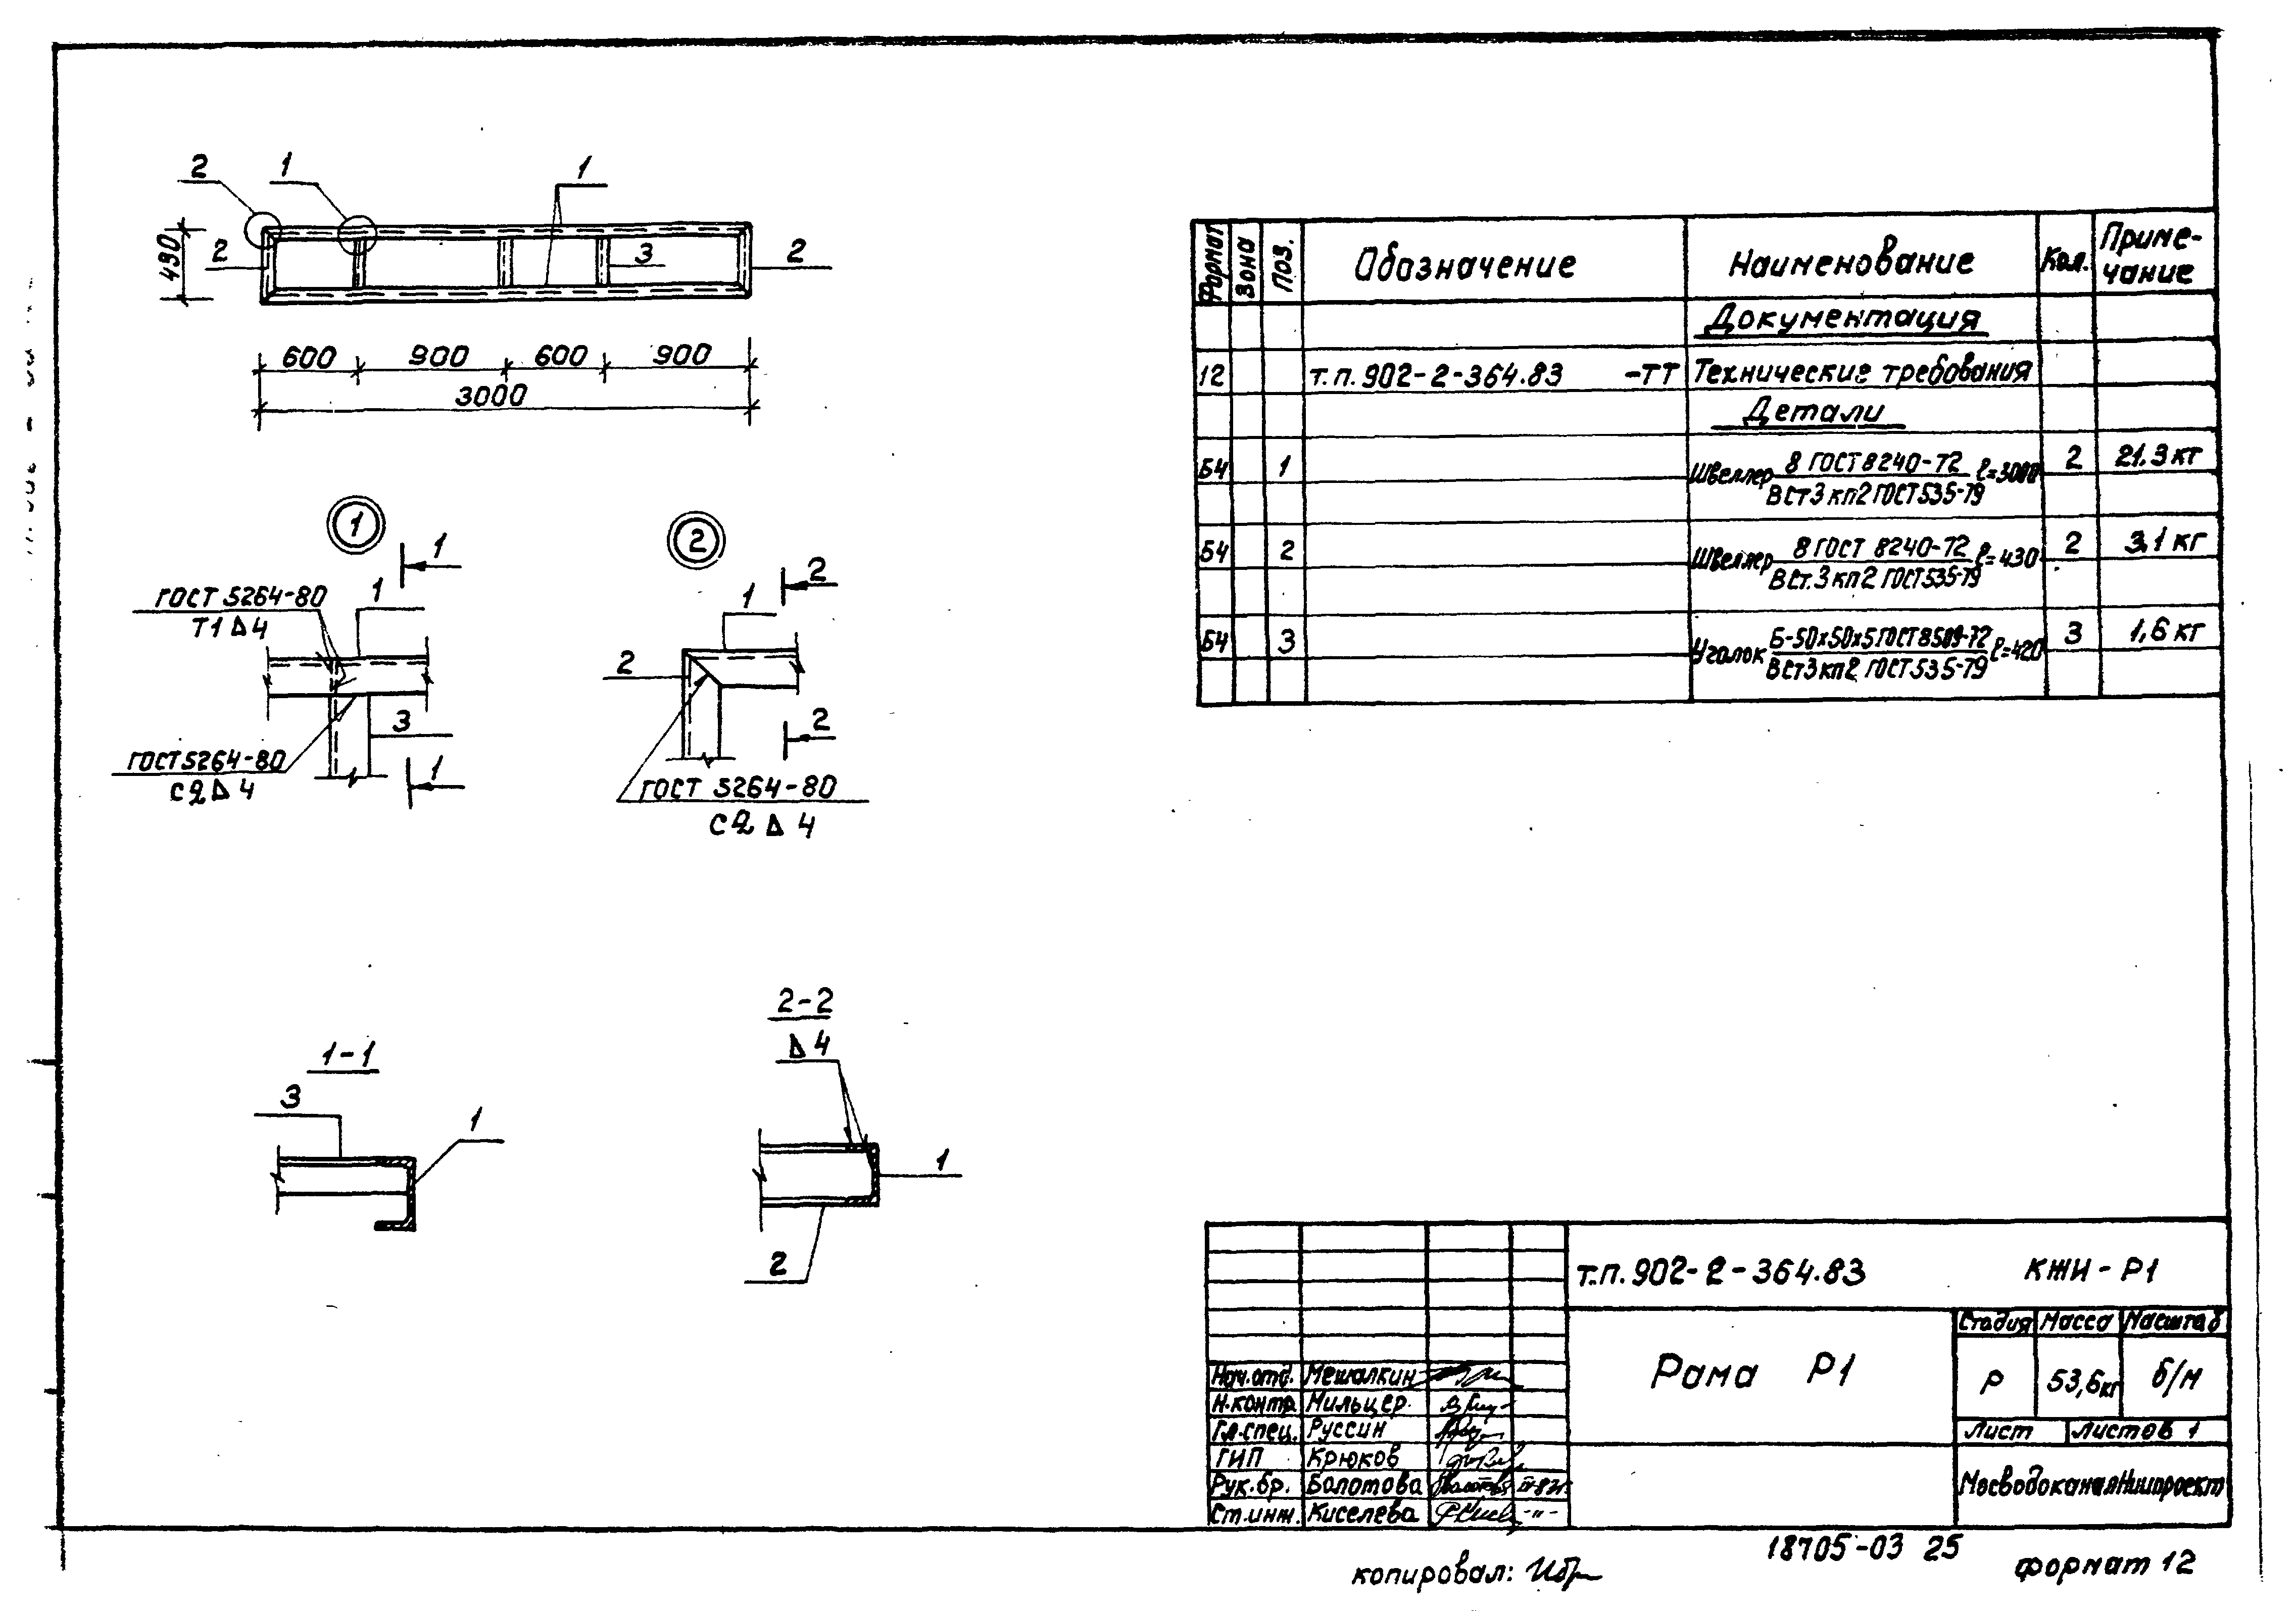 2 1 1
430 2 3 2
600 900 600 900
3000
1
1
ГОСТ 5264-80
Т1 △ 4
1
3
ГОСТ 5264-80
С2 △ 4
1
2
2
1
2
2
ГОСТ 5264-80
С2 △ 4
1-1
3
1
2-2
△ 4
1
2
Формат Зона Поз. Обозначение Наименование Кол. Приме-
чание
Документация
12 т.п. 902-2-364.83 -ТТ Технические требования
Детали
Б4 1 Швеллер 8 ГОСТ 8240-72 ℓ=3000 2 21.3 кг
ВСт3кп2 ГОСТ 535-79
Б4 2 Швеллер 8 ГОСТ 8240-72 ℓ=430 2 3,1 кг
ВСт.3кп2 ГОСТ 535-79
Б4 3 Уголок Б-50х50х5 ГОСТ 8509-72 ℓ=420 3 1,6 кг
ВСт3кп2 ГОСТ 535-79
т.п. 902-2-364.83 КЖИ-Р1
Рама Р1
Стадия Масса Масштаб
Р 53,6 кг б/м
Лист Листов 1
Нач.отд. Мешалкин
Н.контр. Мильцер.
Гл.спец. Руссин
ГИП Крюков
Рук.бр. Болотова
Ст.инж. Киселева -"-
МосводоканалНИИпроект
18705-03 25
копировал:
формат 12